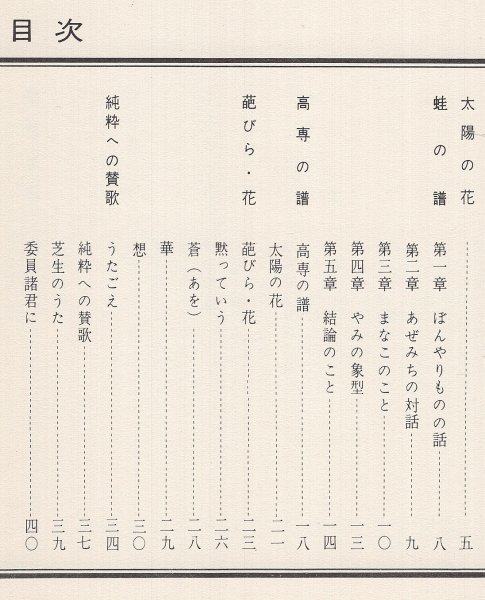 目次
太陽の花 五
蛙の譜 第一章 ぼんやりものの話 八
第二章 あぜみちの対話 九
第三章 まなこのこと 一〇
第四章 やみの象型 一三
第五章 結論のこと 一四
高専の譜 高専の譜 一八
太陽の花 二一
葩びら・花 葩びら・花 二三
黙っていう 二六
蒼(あを) 二八
華 二九
想 三〇
純粋への賛歌 うたごえ 三四
純粋への賛歌 三七
芝生のうた 三九
委員諸君に 四〇